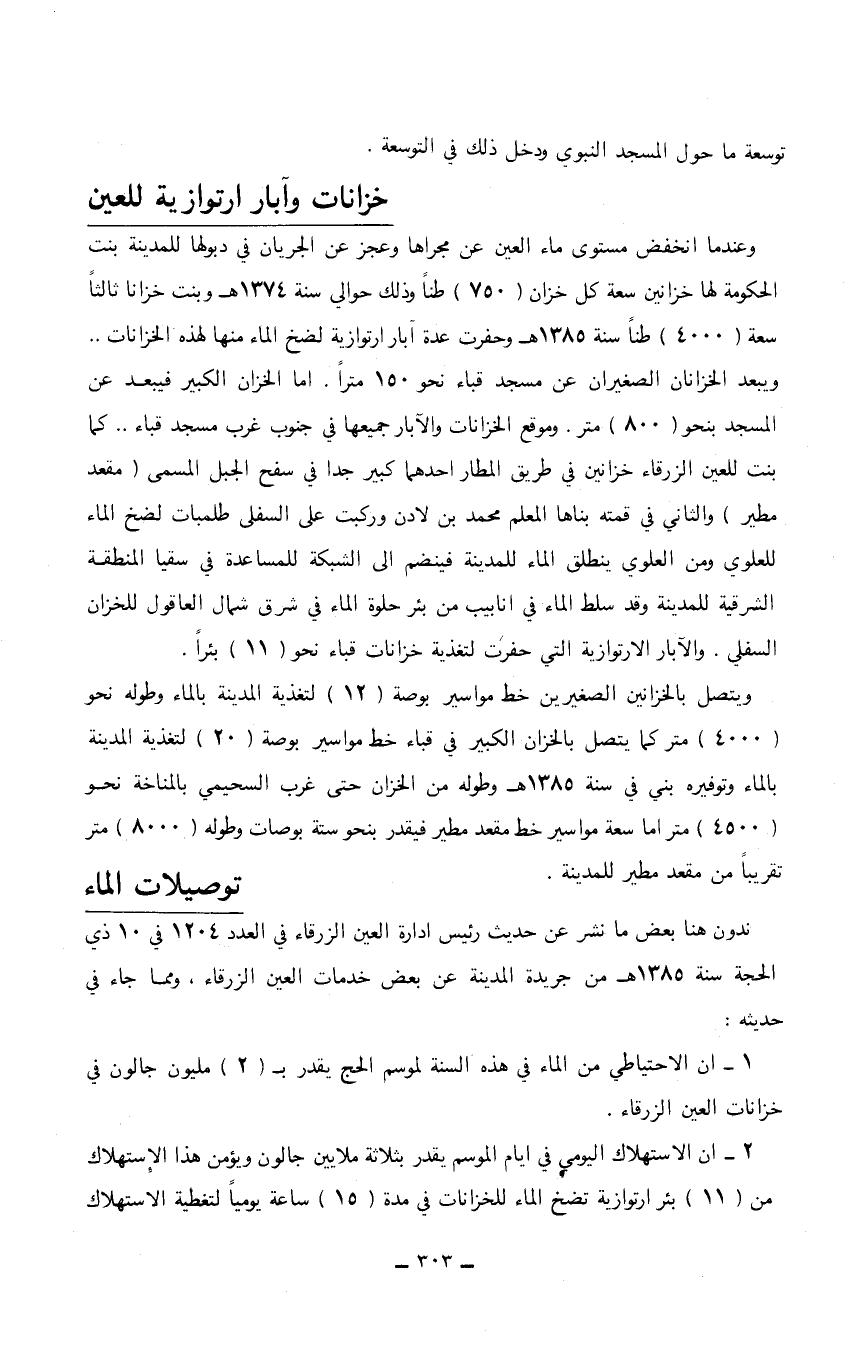 توسعة ما حول المسجد النبوي ودخل ذلك في التوسعة .
خزانات وآبار ارتوازية للعين
وعندما انخفض مستوى ماء العين عن مجراها وعجز عن الجريان في دبولها للمدينة بنت
الحكومة لها خزانين سعة كل خزان ( ٧٥٠ ) طناً وذلك حوالي سنة ١٣٧٤هـ وبنت خزانا ثالثاً
سعة ( ٤٠٠٠ ) طناً سنة ١٣٨٥هـ وحفرت عدة آبار ارتوازية لضخ الماء منها لهذه الخزانات ..
ويبعد الخزانان الصغيران عن مسجد قباء نحو ١٥٠ متراً . اما الخزان الكبير فيبعد عن
المسجد بنحو ( ٨٠٠ ) متر . وموقع الخزانات والآبار جميعها في جنوب غرب مسجد قباء .. كما
بنت للعين الزرقاء خزانين في طريق المطار احدهما كبير جدا في سفح الجبل المسمى ( مقعد
مطير ) والثاني في قمته بناها المعلم محمد بن لادن وركبت على السفلى طلمبات لضخ الماء
للعلوي ومن العلوي ينطلق الماء للمدينة فينضم الى الشبكة للمساعدة في سقيا المنطقة
الشرقية للمدينة وقد سلط الماء في انابيب من بئر حلوة الماء في شرق شمال العاقول للخزان
السفلي . والآبار الارتوازية التي حفرت لتغذية خزانات قباء نحو ( ١١ ) بئراً .
ويتصل بالخزانين الصغيرين خط مواسير بوصة ( ١٢ ) لتغذية المدينة بالماء وطوله نحو
( ٤٠٠٠ ) متر كما يتصل بالخزان الكبير في قباء خط مواسير بوصة ( ٢٠ ) لتغذية المدينة
بالماء وتوفيره بني في سنة ١٣٨٥هـ وطوله من الخزان حتى غرب السحيمي بالمناخة نحو
( ٤٥٠٠ ) متر اما سعة مواسير خط مقعد مطير فيقدر بنحو ستة بوصات وطوله ( ٨٠٠٠ ) متر
تقريباً من مقعد مطير للمدينة .
توصيلات الماء
ندون هنا بعض ما نشر عن حديث رئيس ادارة العين الزرقاء في العدد ١٢٠٤ في ١٠ ذي
الحجة سنة ١٣٨٥هـ من جريدة المدينة عن بعض خدمات العين الزرقاء ، ومما جاء في
حديثه :
١ ـ ان الاحتياطي من الماء في هذه السنة لموسم الحج يقدر بـ ( ٢ ) مليون جالون في
خزانات العين الزرقاء .
٢ ـ ان الاستهلاك اليومي في ايام الموسم يقدر بثلاثة ملايين جالون ويؤمن هذا الإستهلاك
من ( ١١ ) بئر ارتوازية تضخ الماء للخزانات في مدة ( ١٥ ) ساعة يومياً لتغطية الاستهلاك
ـ ٣٠٣ ـ